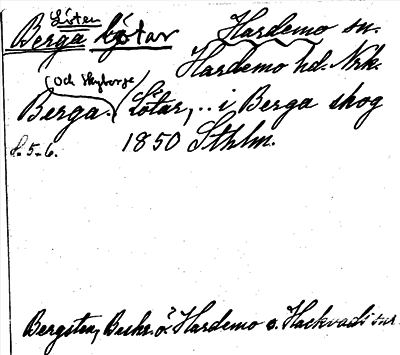 Listen
Berga Lötar Hardemo sn.
Hardemo hd. Nrk.
(och Skyberga)
Berga. Lötar, .. i Berga skog
s. 5-6. 1850 Sthlm.
Bergsten, Beskr. ö. Hardemo o. Hackvads snr